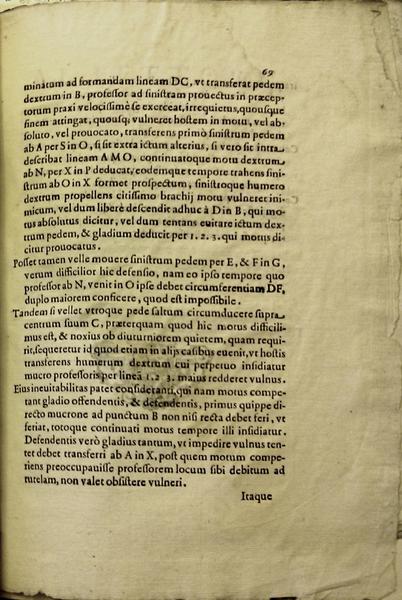 69
minatum ad formandam lineam DC, vt transferat pedem
dextrum in B, professor ad sinistram prouectus in præcep-
torum praxi velocissimè se exerceat, irrequietus, quousque
finem attingat, quousq; vulneret hostem in motu, vel ab-
soluto, vel prouocato, transferens primò sinistrum pedem
ab A per S in O, si sit extra ictum alterius, si vero sit intra
describat lineam A M O, continuatoque motu dextrum
ab N, per X in P deducat, eodemque tempore trahens sini-
strum ab O in X formet prospectum, sinistroque humero
dextrum propellens citissimo brachij motu vulneret ini-
micum, vel dum liberè descendit adhuc à D in B, qui mo-
tus absolutus dicitur, vel dum tentans euitare ictum dex-
trum pedem, & gladium deducit per 1. 2. 3. qui motus di-
citur prouocatus.
Posset tamen velle mouere sinistrum pedem per E, & F in G,
verum difficilior hic defensio, nam eo ipso tempore quo
professor ab N, venit in O ipse debet circumferentiam DF,
duplo maiorem conficere, quod est impossibile.
Tandem si vellet vtroque pede saltum circumducere supra
centrum suum C, præterquam quod hic motus difficili-
mus est, & noxius ob diuturniorem quietem, quam requi-
rit, sequeretur id quod etiam in alijs casibus euenit, vt hostis
transferens humerum dextrum cui perpetuo insidiatur
mucro professoris per lineā 1. 2. 3. maius redderet vulnus.
Eius ineuitabilitas patet consideranti, qui nam motus compe-
tant gladio offendentis, & defendentis, primus quippe di-
recto mucrone ad punctum B non nisi recta debet feri, vt
feriat, totoque continuati motus tempore illi insidiatur.
Defendentis verò gladius tantum, vt impedire vulnus ten-
tet debet transferri ab A in X, post quem motum compe-
riens preoccupauisse professorem locum sibi debitum ad
tutelam, non valet obsistere vulneri.
Itaque